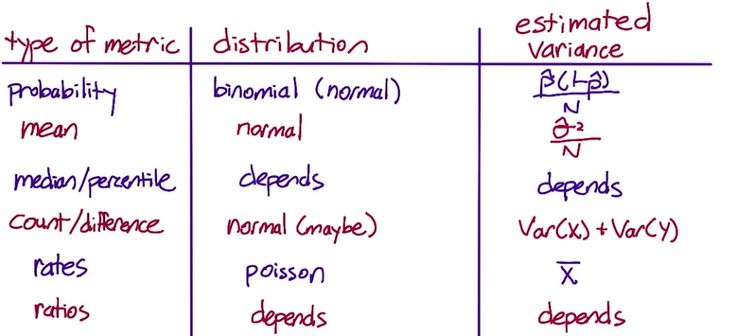 type of metric distribution estimated variance
probability binomial (normal) p̂(1-p̂)/N
mean normal σ̂²/N
median/percentile depends depends
count/difference normal (maybe) Var(X)+Var(Y)
rates poisson X̄
ratios depends depends